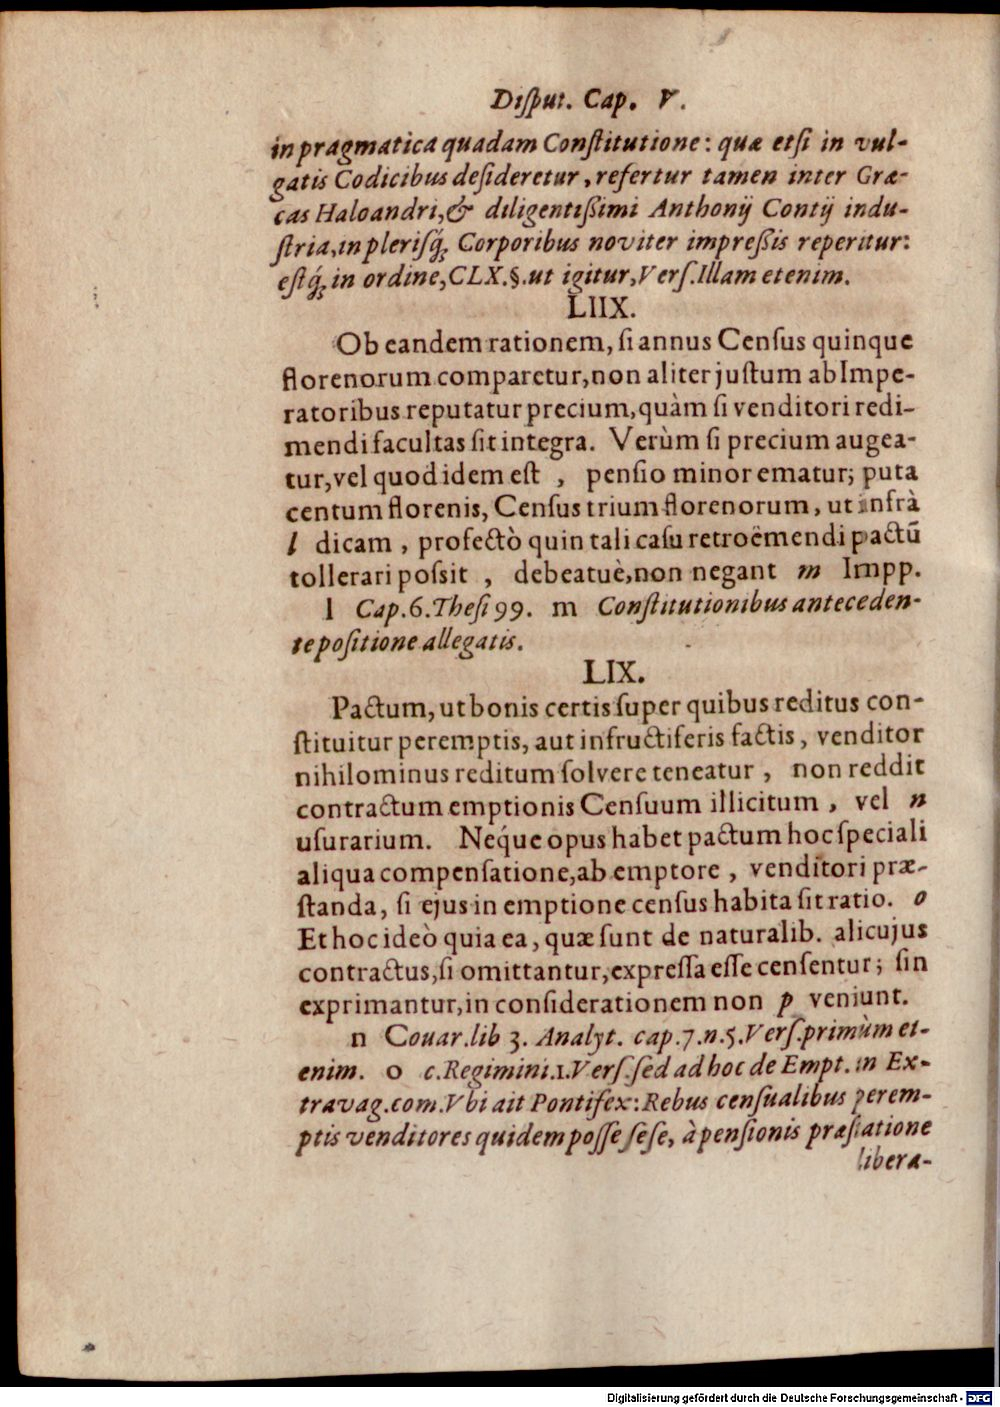 Diſput. Cap. V.
in pragmatica quadam Conſtitutione: quæ etſi in vul-
gatis Codicibus deſideretur, refertur tamen inter Græ-
cas Haloandri, & diligentißimi Anthonij Contij indu-
ſtria, in pleriſq́; Corporibus noviter impreßis reperitur:
eſtq́; in ordine, CLX. §. ut igitur, Verſ. Illam etenim.
LIIX.
Ob eandem rationem, ſi annus Cenſus quinque
florenorum comparetur, non aliter juſtum ab Impe-
ratoribus reputatur precium, quàm ſi venditori redi-
mendi facultas ſit integra. Verùm ſi precium augea-
tur, vel quod idem eſt , penſio minor ematur; puta
centum florenis, Cenſus trium florenorum, ut infrà
l dicam , profectò quin tali caſu retroëmendi pactũ
tollerari poſsit , debeatuè, non negant m Impp.
l Cap. 6. Theſi 99. m Conſtitutionibus anteceden-
te poſitione allegatis.
LIX.
Pactum, ut bonis certis ſuper quibus reditus con-
ſtituitur peremptis, aut infructiferis factis, venditor
nihilominus reditum ſolvere teneatur , non reddit
contractum emptionis Cenſuum illicitum , vel n
uſurarium. Neq́ue opus habet pactum hoc ſpeciali
aliqua compenſatione, ab emptore , venditori præ-
ſtanda, ſi ejus in emptione cenſus habita ſit ratio. o
Et hoc ideò quia ea, quæ ſunt de naturalib. alicujus
contractus, ſi omittantur, expreſſa eſſe cenſentur; ſin
exprimantur, in conſiderationem non p veniunt.
n Covar. lib 3. Analyt. cap. 7. n. 5. Verſ. primùm et-
enim. o c. Regimini. 1. Verſ. ſed ad hoc de Empt. in Ex-
travag. com. Vbi ait Pontifex: Rebus cenſualibus perem-
ptis venditores quidem poſſe ſeſe, à penſionis præſtatione
libera-
Digitalisierung gefördert durch die Deutsche Forschungsgemeinschaft - DFG